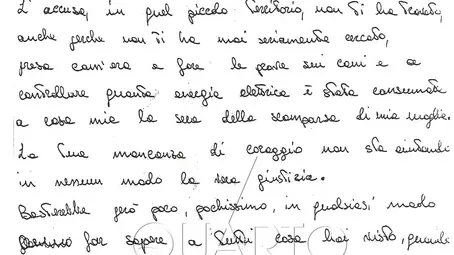 L'accusa, in quel piccolo territorio, non ti ha trovato,
anche perche non ti ha mai seriamente cercato,
presa com'era a fare le prove sui cani e a
controllare quanta energia elettrica è stata consumata
a casa mia la sera della scomparsa di mia moglie.
La tua mancanza di coraggio non sta aiutando
in nessun modo la vera giustizia.
Basterebbe però poco, pochissimo, in qualsiasi modo
far sapere a tutti cosa hai visto, quando
QUARTO